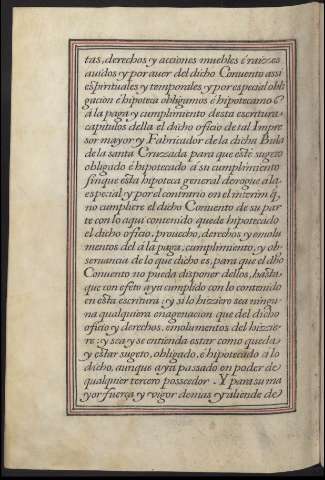 tas, derechos y acciones muebles é raizes
auidos y por auer del dicho Conuento assi
espirituales y temporales, y por especial obli
gacion é hipoteca obligamos é hipotecamos
á la paga y cumplimiento desta escritura
capitulos della el dicho oficio de tal Impre
sor mayor y Fabricador de la dicha Bula
de la santa Cruzada para que esté sugeto
obligado é hipotecado á su cumplimiento
sin que esta hipoteca general derogue a la
especial y por el contrario en el interim q̃
no cumpliere el dicho Conuento de su par
te con lo aqui contenido quede hipotecado
el dicho oficio, prouecho, derechos y emolu
mentos del á la paga, cumplimiento, y ob
seruancia de lo que dicho es, para que el dho
Conuento no pueda disponer dellos, hasta
que con efeto aya cumplido con lo contenido
en esta escritura: y si lo hizziere sea ningu
na qualquiera enagenacion que del dicho
oficio y derechos, emolumentos del hizzie
re: y sea y se entienda estar como queda
y estar sugeto, obligado, é hipotecado a lo
dicho, aunque aya passado en poder de
qualquier tercero posseedor. Y para su ma
yor fuerça y vigor demas y allende de